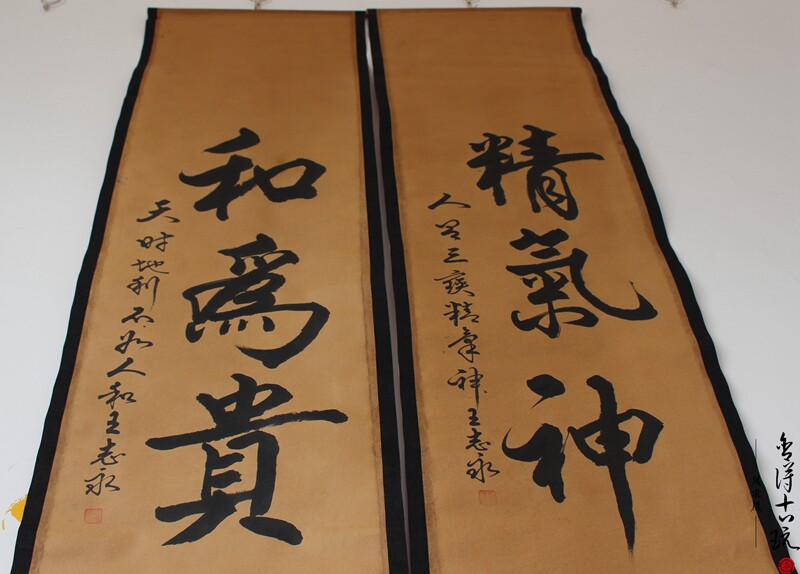 精氣神
人有三寶精氣神王志永
和為貴
天時地利不如人和王志永